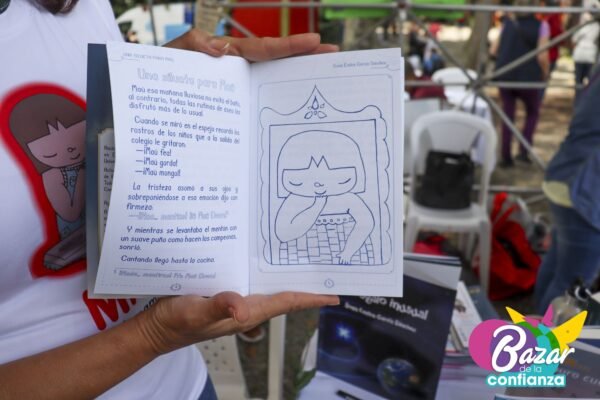 Una silueta para Maú
Maú esa mañana lluviosa no evitó el baño,
al contrario, todas las rutinas de aseo las
disfrutó más de lo usual.
Cuando se miró en el espejo recordó los
rostros de los niños que a la salida del
colegio le gritaron:
—¡Maú fea!
—¡Maú gorda!
—¡Maú monga!
La tristeza asomó a sus ojos y
sobreponiéndose a esa emoción dijo con
firmeza:
Y mientras se levantaba el mentón con
un suave puño como hacen los campeones,
sonrió.
Cantando llegó hasta la cocina.
Enna Exelina García Sánchez
inusual
Bazar
de la
confianza